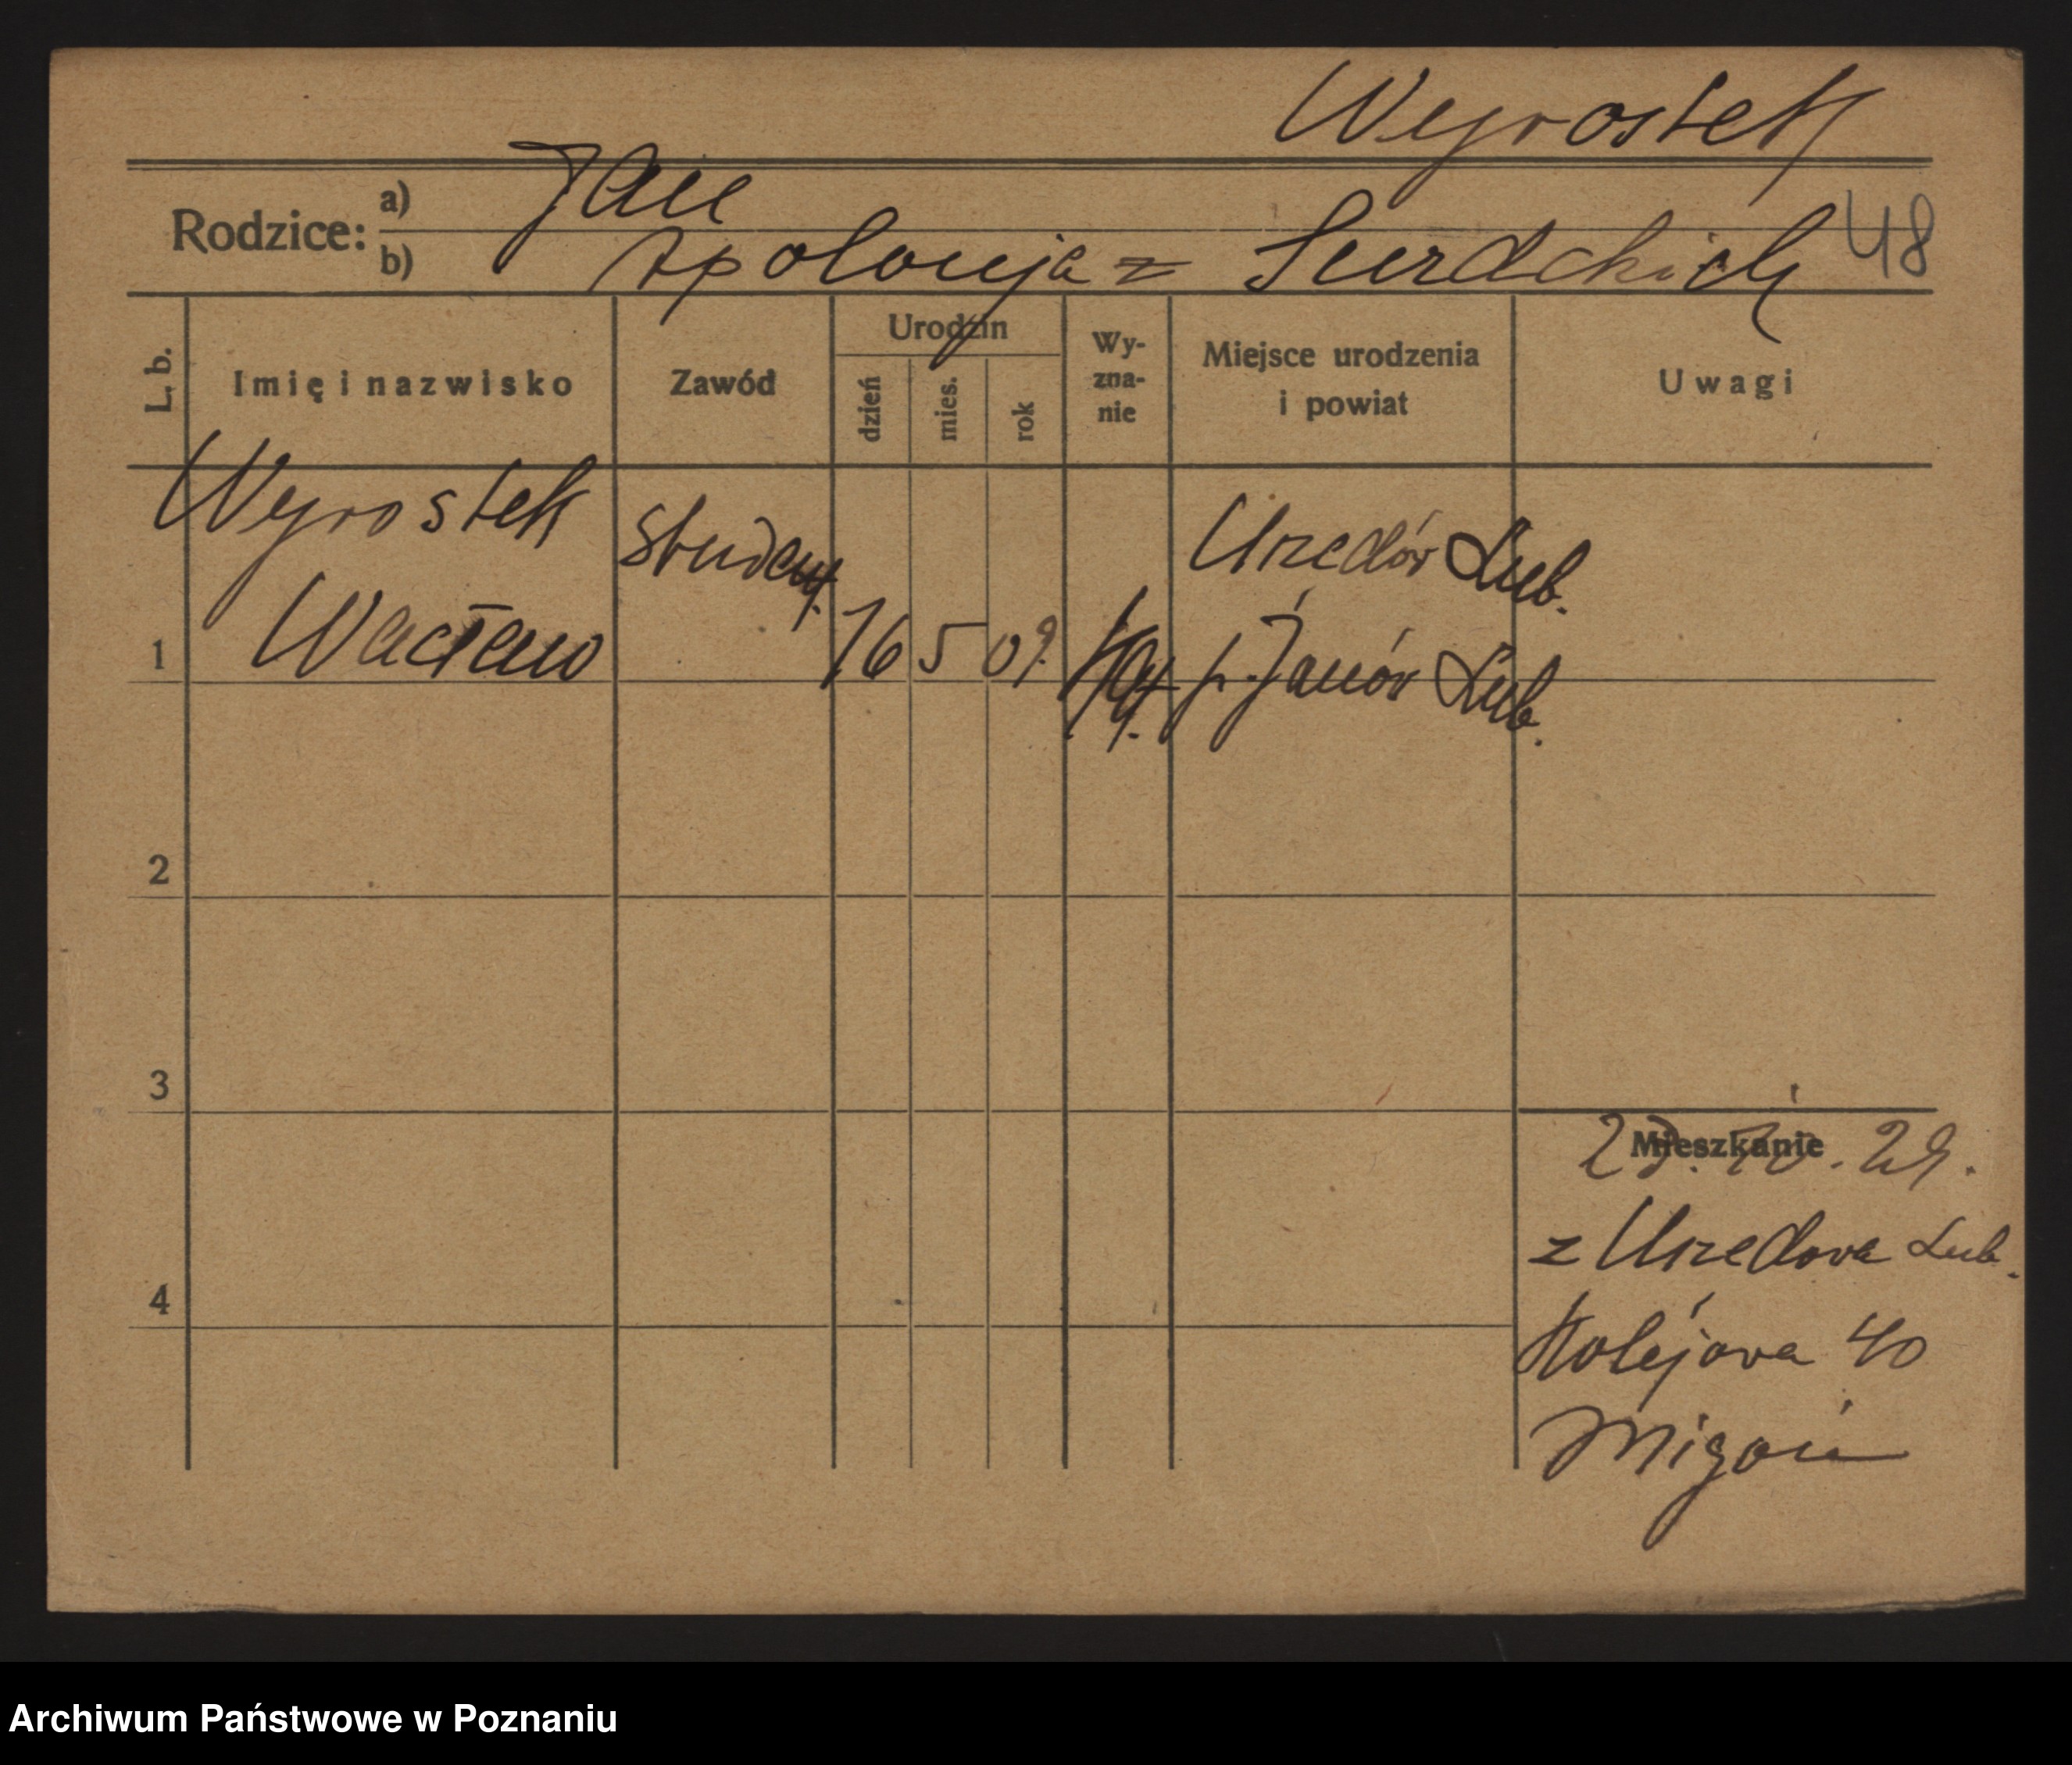 Wyrostek
Rodzice: a) Jan
b) Apolonja z Surdackich 48
L. b. Imię i nazwisko Zawód Urodzin dzień mies. rok Wyznanie Miejsce urodzenia i powiat Uwagi
Wyrostek student. Urzędów Lub.
1 Wacław 16 5 09. kat. p. Janów Lub.
2
3
Mieszkanie
. 29.
z Urzędowa Lub.
4
Kolejowa 40
Migoń
Archiwum Państwowe w Poznaniu